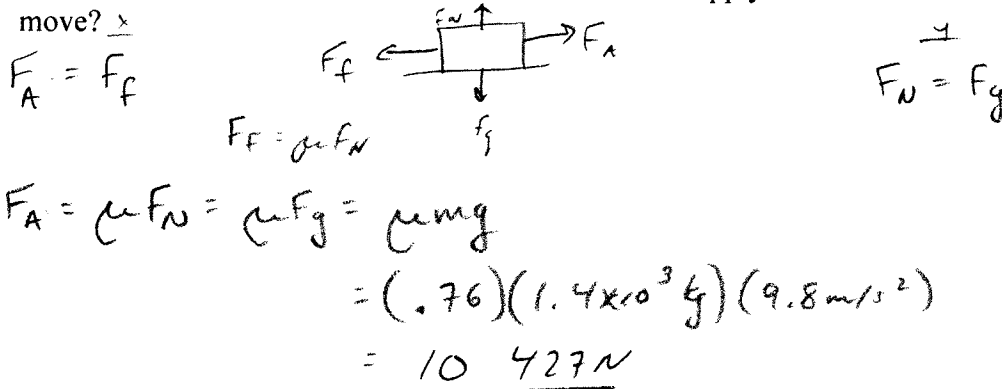 move? x
F_A = F_f
F_N
F_f
F_A
F_g
y
F_N = F_g
F_f = μF_N
F_A = μF_N = μF_g = μmg
= (.76)(1.4x10³ kg)(9.8 m/s²)
= 10 427N